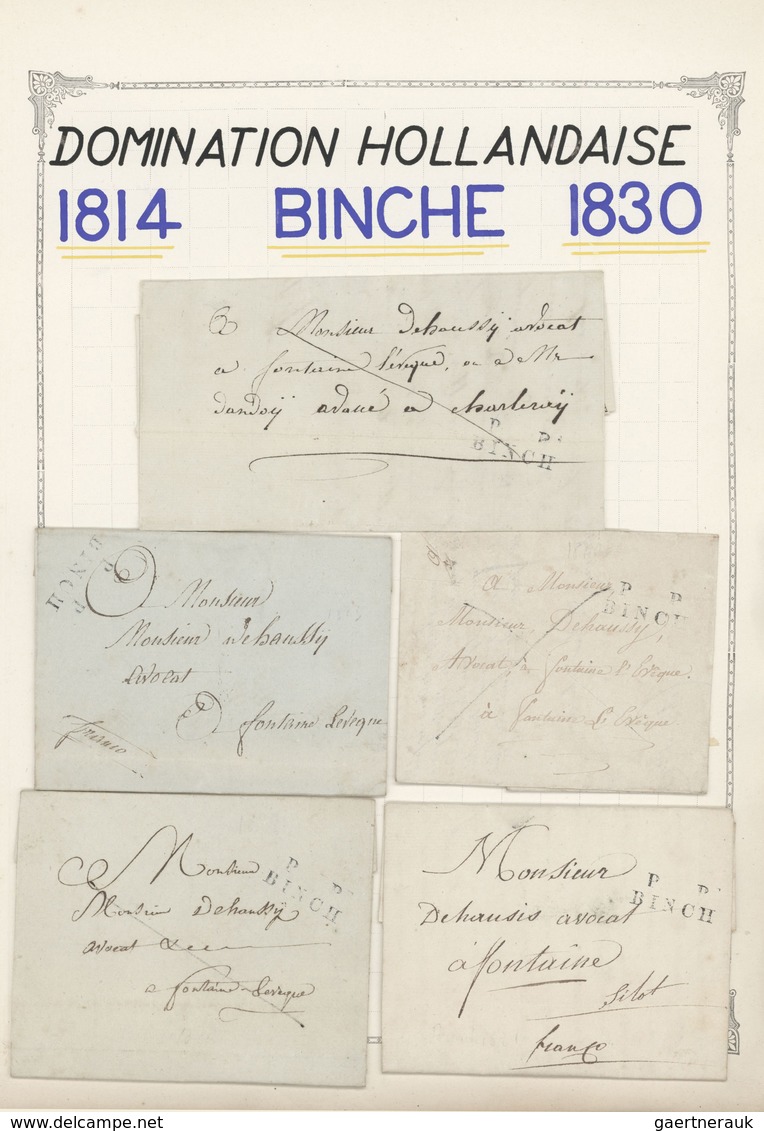 DOMINATION HOLLANDAISE
1814 BINCHE 1830
A Monsieur dehaussÿ avocat
a fontaine l'éveque, ou a Mr
dandoÿ avoué a charleroÿ
P P.
BINCH
P P
BINCH
Monsieur
Monsieur dehaussÿ
avocat
a fontaine Leveque
franco
A Monsieur
P P
BINCH
Monsieur Dehaussy,
Avocat, à fontaine l'Evêque.
à fontaine L'Evêque
Monsieur
P P.
BINCH
Monsieur dehaussÿ
avocat
a fontaine Leveque
Monsieur
P P.
BINCH
Dehausis avocat
à fontaine
franco
delcampe.net
gaertnerauk